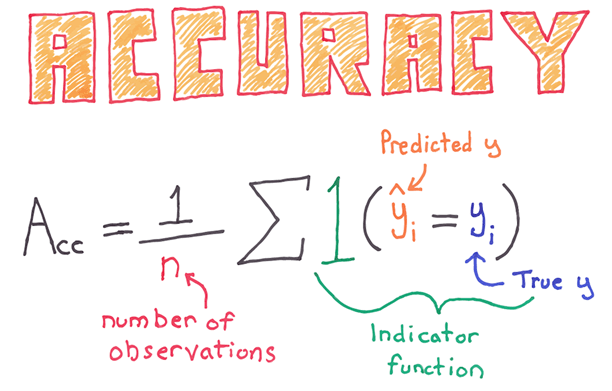 ACCURACY
Predicted y
Acc = 1/n ∑ 1(ŷᵢ = yᵢ)
True y
number of
observations
Indicator
function